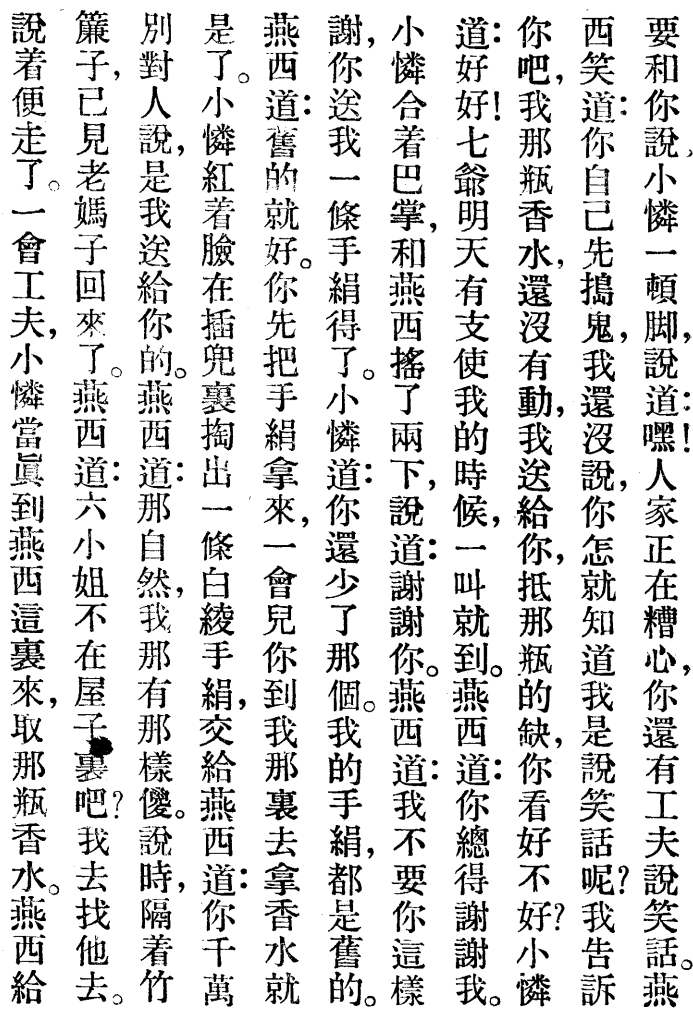 要和你說。小憐一頓脚，說道：嘿！人家正在糟心，你還有工夫說笑話。燕
西笑道：你自己先搗鬼，我還沒說，你怎就知道我是說笑話呢？我告訴
你吧，我那瓶香水，還沒有動，我送給你，抵那瓶的缺，你看好不好？小憐
道：好好！七爺明天有支使我的時候，一叫就到。燕西道：你總得謝謝我。
小憐合着巴掌，和燕西搖了兩下，說道：謝謝你。燕西道：我不要你這樣
謝，你送我一條手絹得了。小憐道：你還少了那個。我的手絹，都是舊的。
燕西道：舊的就好。你先把手絹拿來，一會兒你到我那裏去拿香水就
是了。小憐紅着臉在插兜裏掏出一條白綾手絹，交給燕西道：你千萬
別對人說，是我送給你的。燕西道：那自然，我那有那樣傻。說時，隔着竹
簾子，已見老媽子回來了。燕西道：六小姐不在屋子裏吧？我去找他去。
說着便走了。一會工夫，小憐當眞到燕西這裏來，取那瓶香水。燕西給